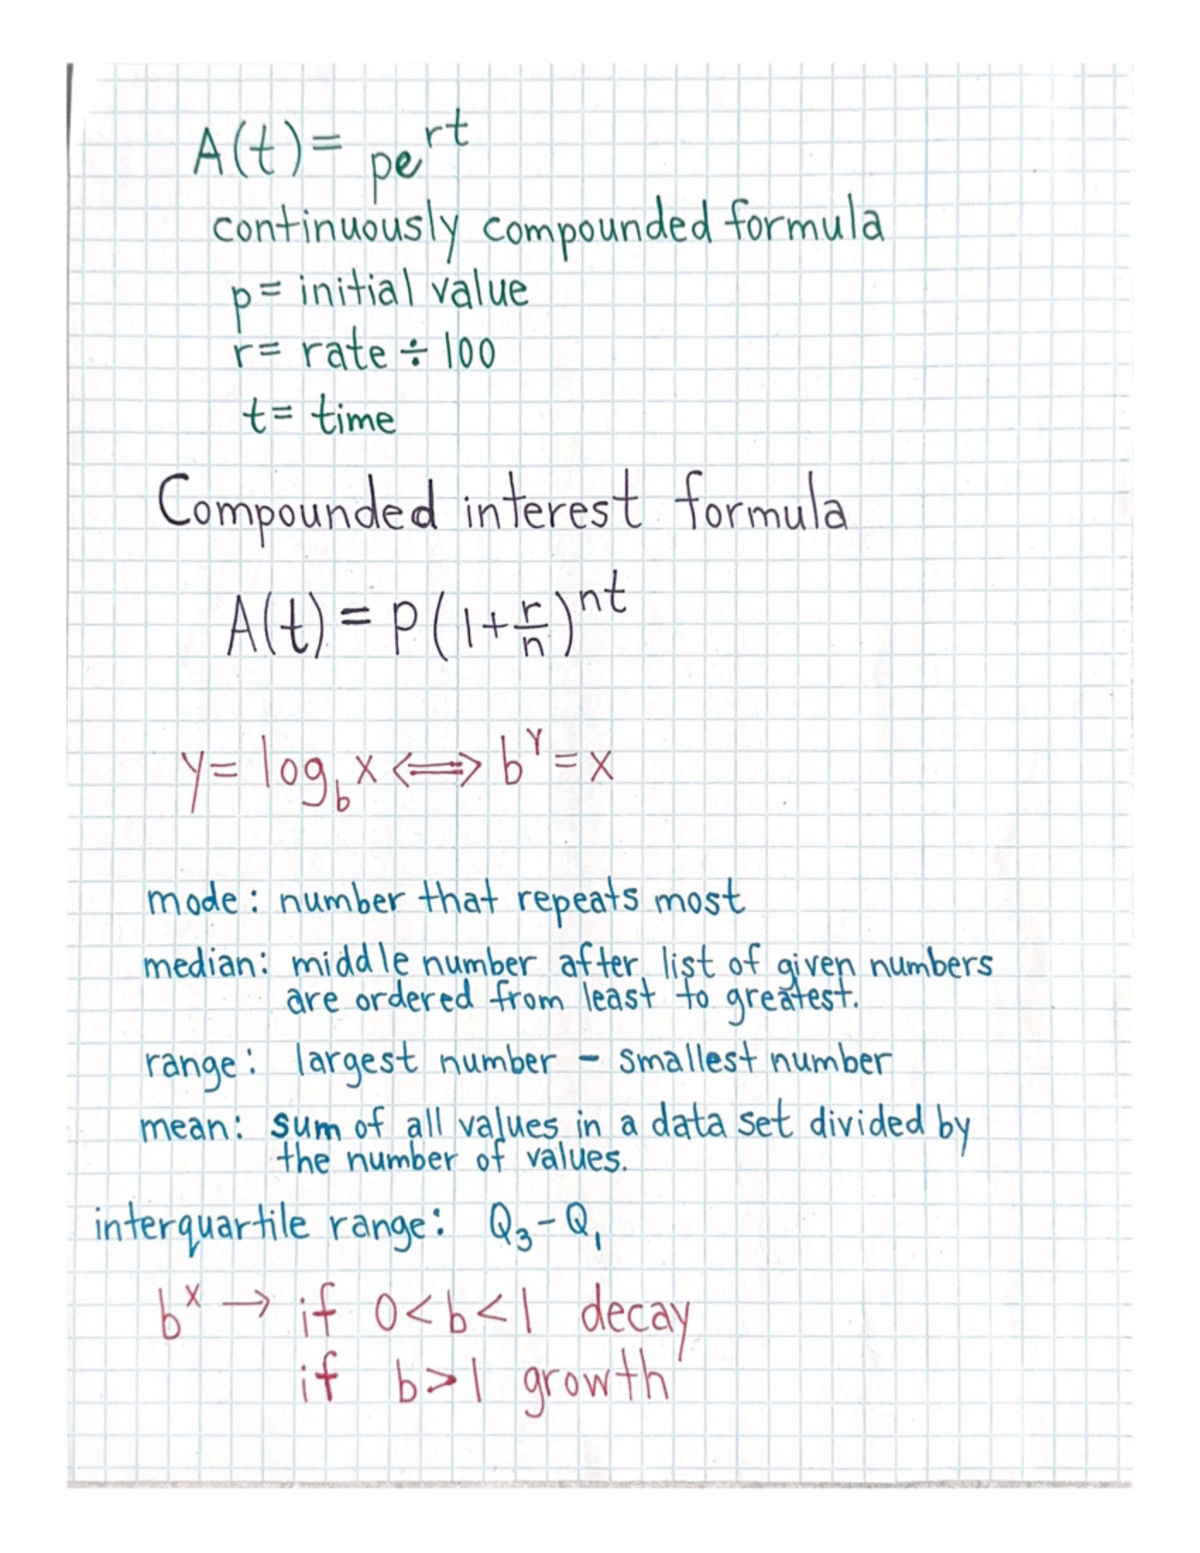 A(t) = pe^rt
continuously compounded formula
p = initial value
r = rate ÷ 100
t = time
Compounded interest formula
A(t) = P(1+r/n)^nt
y = log_b x ⟺ b^y = x
mode: number that repeats most
median: middle number after list of given numbers
are ordered from least to greatest.
range: largest number - smallest number
mean: sum of all values in a data set divided by
the number of values.
interquartile range: Q₃-Q₁
b^x → if 0<b<1 decay
if b>1 growth